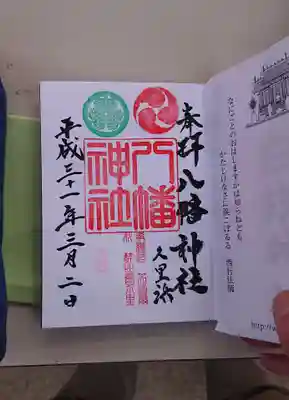 奉拝 八幡神社
久里浜
八幡
神社
平成三十一年三月二日
なにごとのおはしますかは知らねども
かたじけなさに涙こぼるる 西行法師
http://